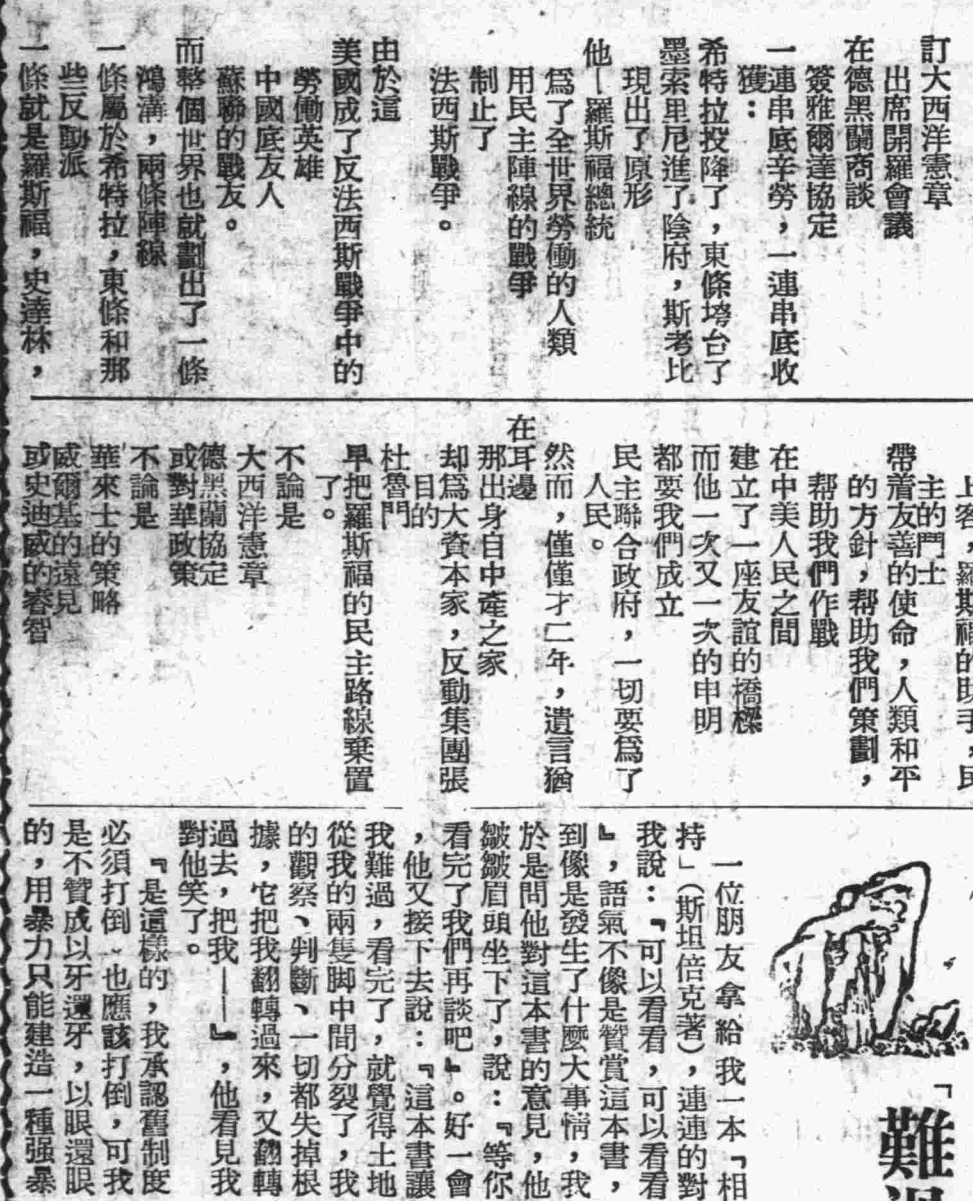 訂大西洋憲章
出席開羅會議
在德黑蘭商談
簽雅爾達協定
一連串底辛勞，一連串底收
獲：
希特拉投降了，東條塲台了
墨索里尼進了陰府，斯考比
現出了原形
他—羅斯福總統
爲了全世界勞働的人類
用民主陣線的戰爭
制止了
法西斯戰爭。
由於這
美國成了反法西斯戰爭中的
勞働英雄
中國底友人
蘇聯的戰友。
而整個世界也就劃出了一條
鴻溝，兩條陣線
一條屬於希特拉，東條和那
些反動派
一條就是羅斯福，史達林，
上客，羅斯福的助手，民
主的鬥士
帶着友善的使命，人類和平
的方針，帮助我們策劃，
帮助我們作戰
在中美人民之間
建立了一座友誼的橋樑
而他一次又一次的申明
都要我們成立
民主聯合政府，一切要爲了
人民。
然而，僅僅才二年，遺言猶
在耳邊
那出身自中產之家
却爲大資本家，反動集團張
目的
杜魯門
早把羅斯福的民主路線棄置
了。
不論是
大西洋憲章
德黑蘭協定
或對華政策
不論是
華來士的策略
威爾基的遠見
或史迪威的睿智
「難
一位朋友拿給我一本「相
持」（斯坦倍克著），連連的對
我說：『可以看看，可以看看
』，語氣不像是贊賞這本書，
到像是發生了什麼大事情，我
於是問他對這本書的意見，他
皺皺眉頭坐下了，說：『等你
看完了我們再談吧』。好一會
，他又接下去說：『這本書讓
我難過，看完了，就覺得土地
從我的兩隻脚中間分裂了，我
的觀察、判斷、一切都失掉根
據，它把我翻轉過來，又翻轉
過去，把我——』，他看見我
對他笑了。
『是這樣的，我承認舊制度
必須打倒、也應該打倒，可我
是不贊成以牙還牙，以眼還眼
的，用暴力只能建造一種强暴